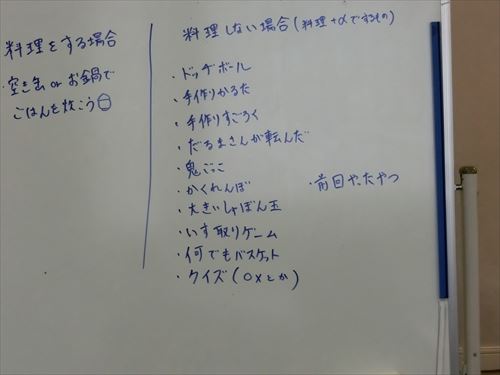 料理をする場合
・空き缶 or お鍋で
ごはんを炊こう
料理しない場合(料理+αでするもの)
・ドッヂボール
・手作りかるた
・手作りすごろく
・だるまさんが転んだ
・鬼ごっこ
・かくれんぼ
・大きいしゃぼん玉
・いす取りゲーム
・何でもバスケット
・クイズ(○×とか)
・前回やったやつ